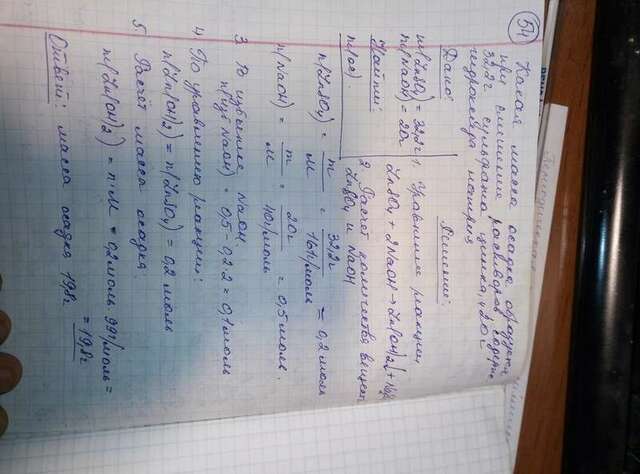 54 Какая масса осадка образуется
при смешении растворов, содерж.
32,2г сульфата цинка и 20г
гидроксида натрия
Дано:
m(ZnSO₄) = 32,2г
m(NaOH) = 20г
Найти:
m(ос).
Решение:
1. Уравнение реакции
ZnSO₄ + 2NaOH → Zn(OH)₂↓ +
2 Расчет количества вещест
ZnSO₄ и NaOH
n(ZnSO₄) = m/M = 32,2г/161г/моль = 0,2 моль
n(NaOH) = m/M = 20г/40г/моль = 0,5 моль.
3 В избытке NaOH
n(изб NaOH) = 0,5 - 0,2·2 = 0,1 моль
4 По уравнению реакции:
n(Zn(OH)₂) = n(ZnSO₄) = 0,2 моль
5. Расчёт массы осадка.
m(Zn(OH)₂) = n·M = 0,2 моль · 99г/моль =
= 19,8г
Ответ: масса осадка 19,8г